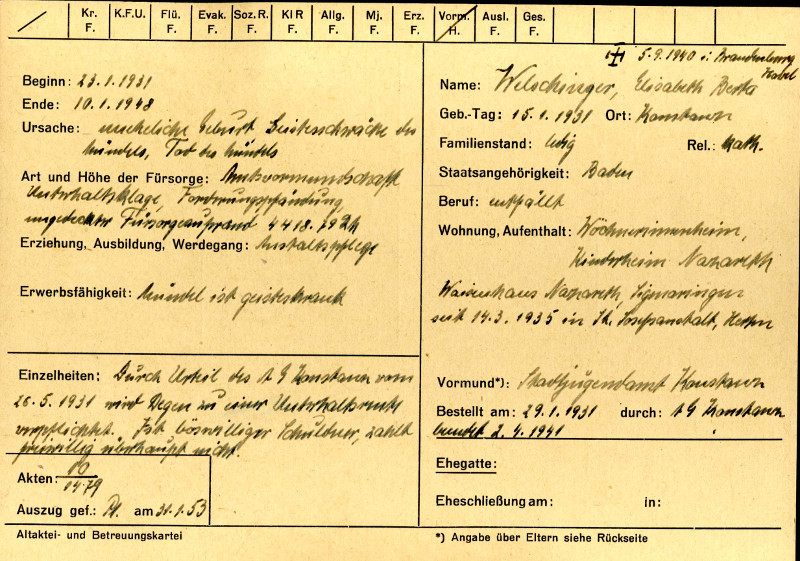 Kr. F.
K.F.U.
Flü. F.
Evak. F.
Soz.R. F.
Kl R F.
Allg. F.
Mj. F.
Erz. F.
Vorm. H.
Ausl. F.
Ges. F.
Beginn: 23.1.1931
Ende: 10.1.1948
Ursache: uneheliche Geburt Geistesschwäche des
Mündels, Tod des Mündels
Art und Höhe der Fürsorge: Amtsvormundschaft
Unterhaltsklage, Forderungspfändung,
ungedeckter Fürsorgeaufwand 4418.79
Erziehung, Ausbildung, Werdegang: Anstaltspflege
Erwerbsfähigkeit: Mündel ist geisteskrank
Einzelheiten: Durch Urteil des AG Konstanz vom
26.5.1931 wird Degen zu einer Unterhaltsrente
verpflichtet. Ist böswilliger Schuldner, zahlt
freiwillig überhaupt nicht.
Akten: 10
1479
Auszug gef.: am 31.1.53
Altaktei- und Betreuungskartei
5.9.1940 i. Brandenburg
Havel
Name: Welschinger, Elisabeth Berta
Geb.-Tag: 15.1.1931 Ort: Konstanz
Familienstand: ledig Rel.: kath.
Staatsangehörigkeit: Baden
Beruf: entfällt
Wohnung, Aufenthalt: Wöchnerinnenheim,
Kinderheim Nazareth
Waisenhaus Nazareth, Sigmaringen
seit 14.3.1935 in St. Josefsanstalt, Herten
Vormund*): Stadtjugendamt Konstanz
Bestellt am: 29.1.1931 durch: AG Konstanz
beendet 2.4.1941
Ehegatte:
Eheschließung am: in:
*) Angabe über Eltern siehe Rückseite